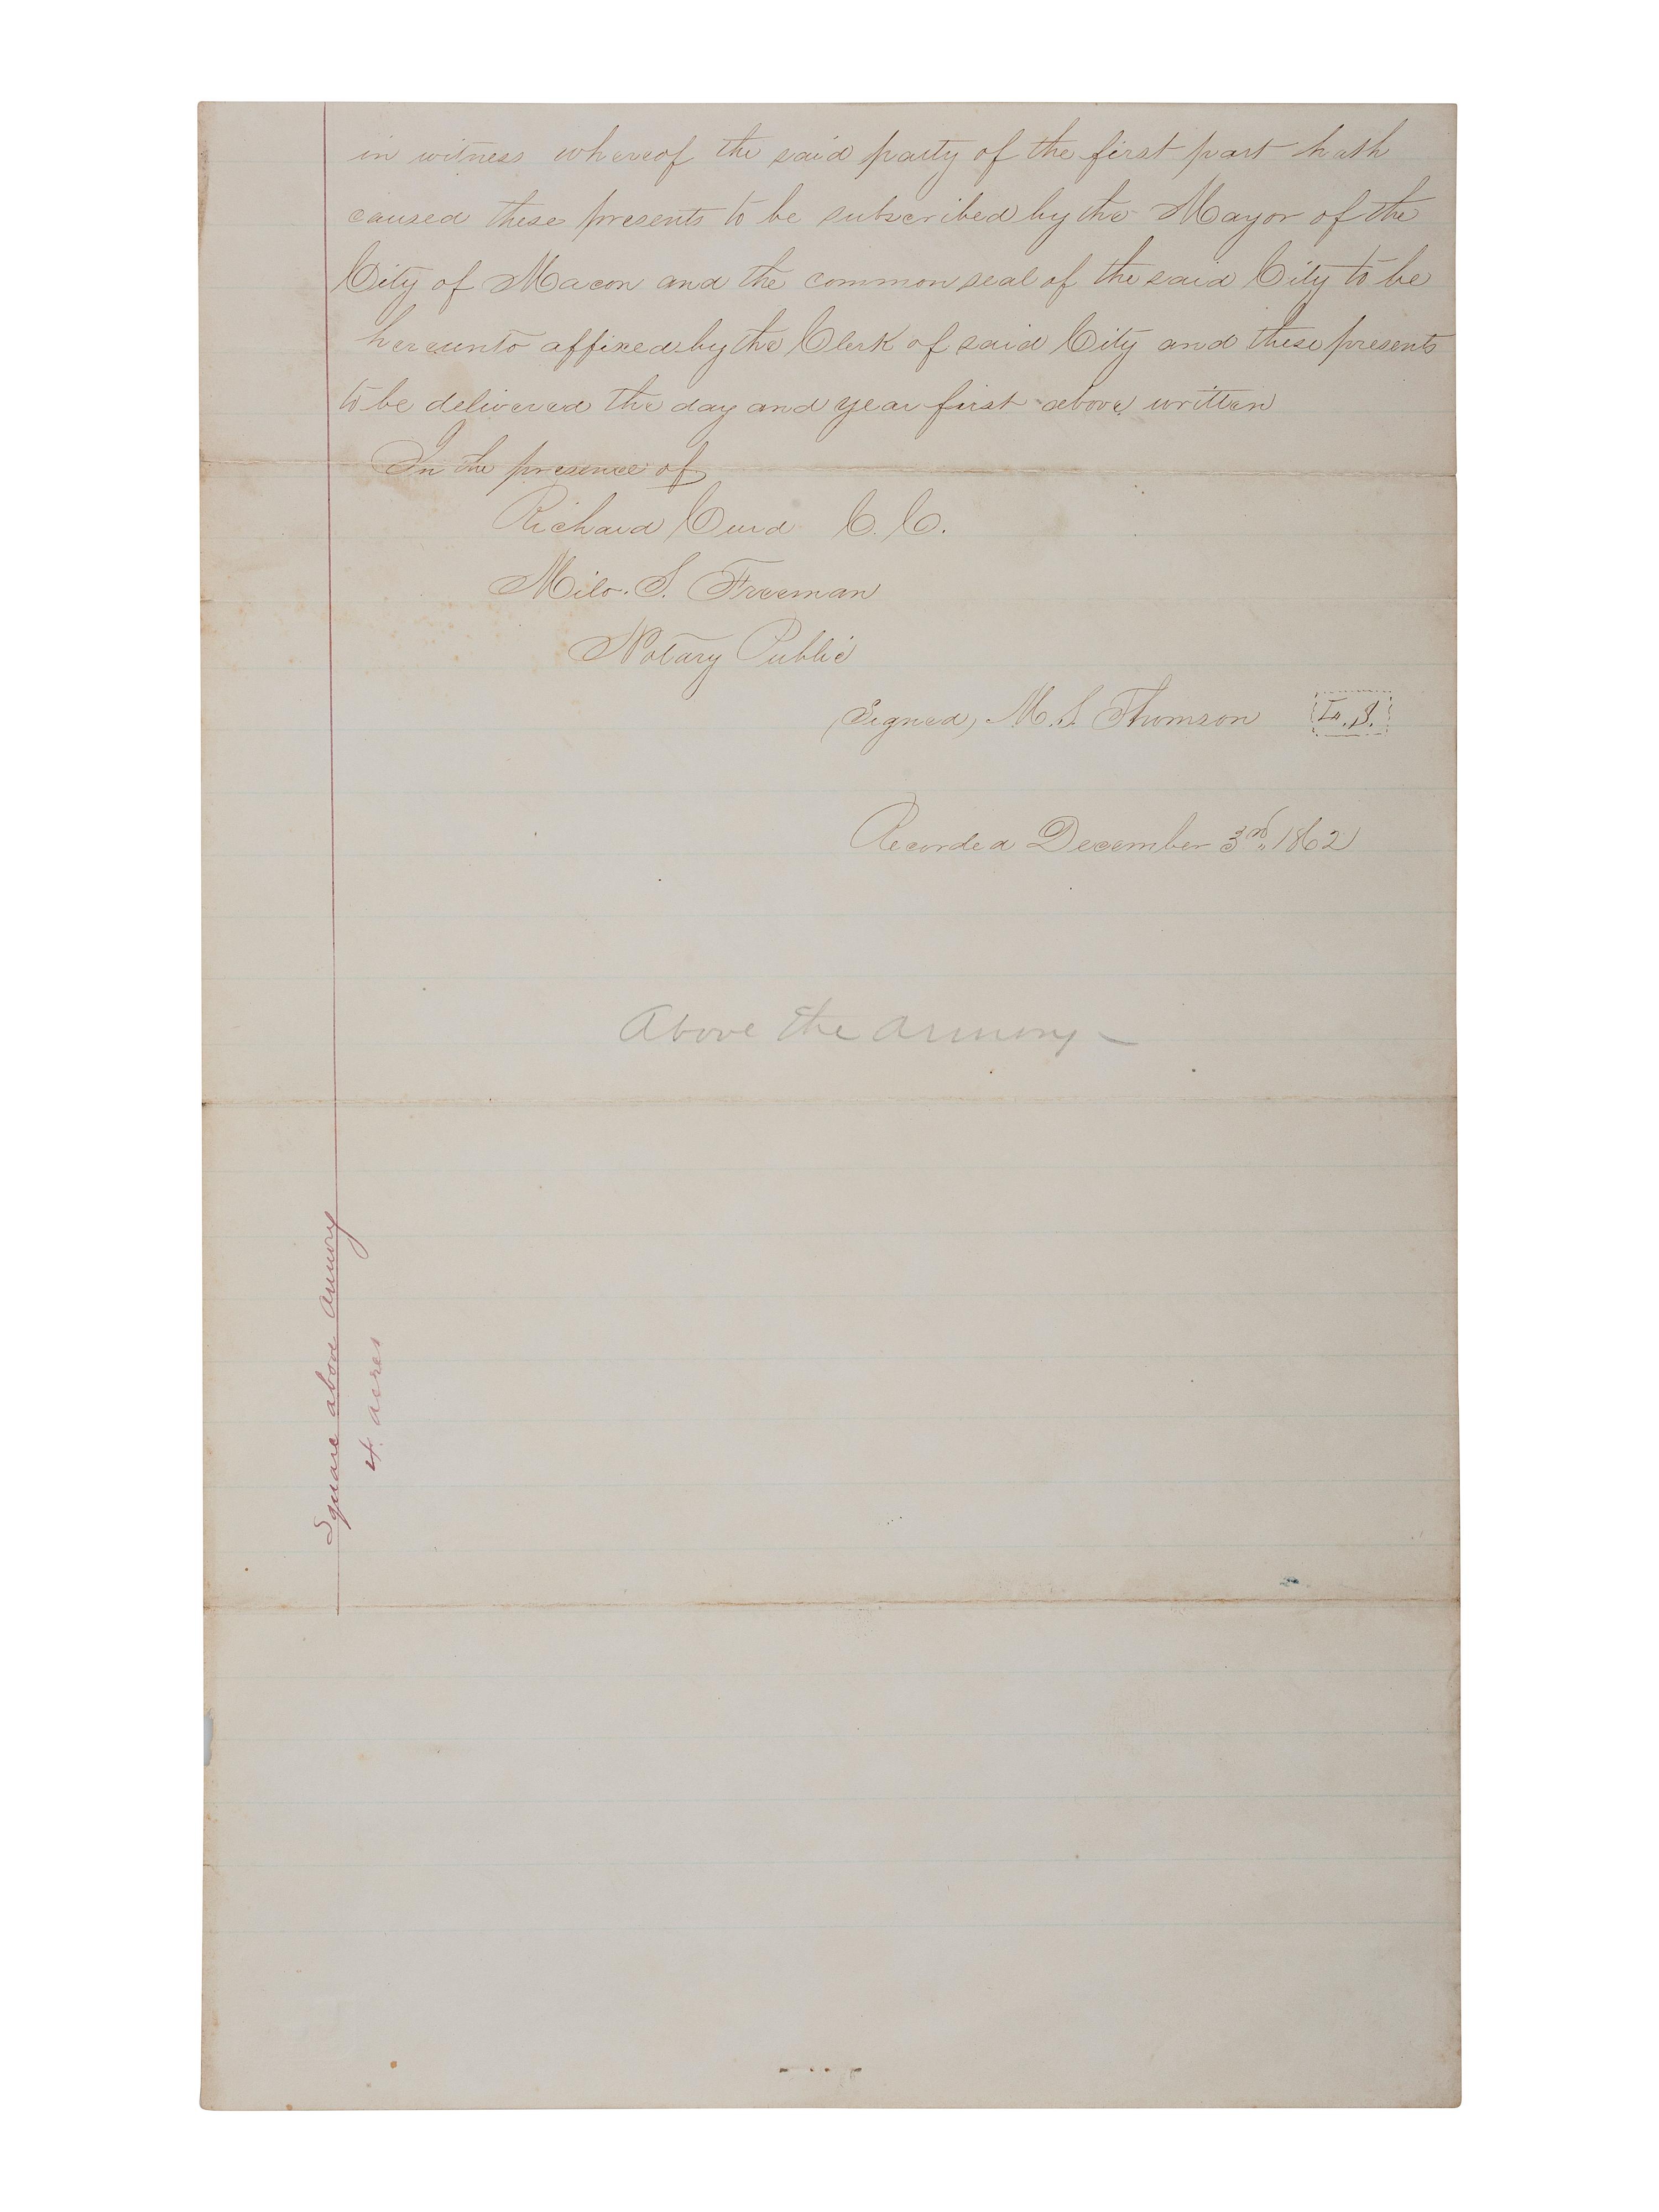 in witness whereof the said party of the first part hath
caused these presents to be subscribed by the Mayor of the
City of Macon and the common seal of the said City to be
hereunto affixed by the Clerk of said City and these presents
to be delivered the day and year first above written
In the presence of
Richard Curd C. C.
Milo. S. Freeman
Notary Public
(Signed) M. S. Thomson L. S.
Recorded December 3rd, 1862
Above the armory —
Square above Armory
4 acres